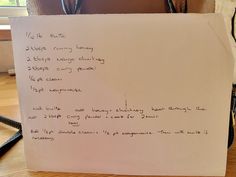 1/4 lb butter
2 tbsps runny honey
2 tbsps mango chutney
2 tbsps curry powder
1/4 pt cream
1/2 pt mayonnaise
melt butter add honey + chutney heat through then
add 2 tbsps curry powder + cook for 2 mins
Cool
Add 1/4 pt double cream + 1/2 pt mayonnaise - then milk if
necessary